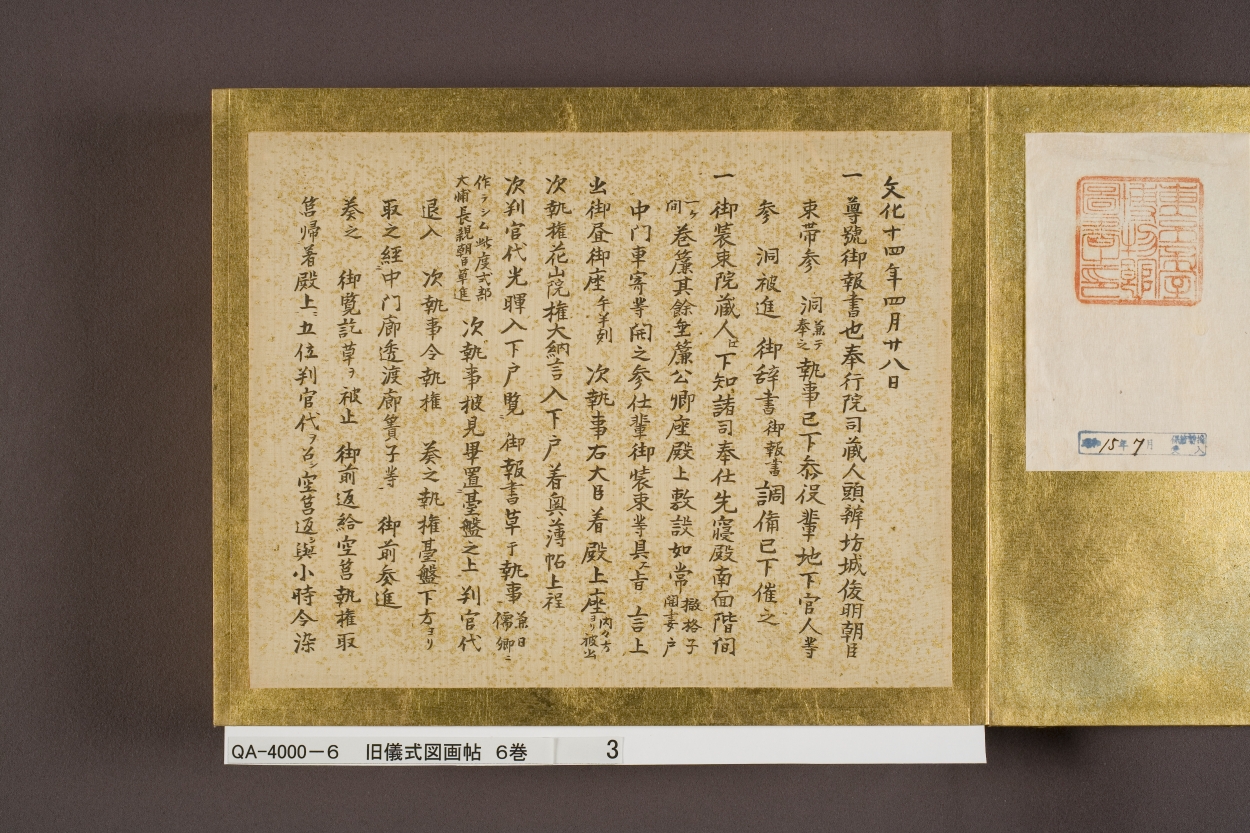 文化十四年四月廿八日
一 尊號御報書也奉行院司蔵人頭辨坊城俊明朝臣
束帯参 洞 兼テ奉之 執事已下参役輩地下官人等
参 洞被進 御辞書 御報書 調備已下催之
一 御装束院蔵人ニ下知諸司奉仕先寝殿南面階間
一ケ間 巻簾其餘垂簾公卿座殿上敷設如常 撤格子開妻戸
中門車寄等開之参仕輩御装束等具之旨 言上
出御昼御座 午半刻 次執事右大臣着殿上座 内々方ヨリ被出
次執権花山院権大納言入下戸着奥薄帖上程
次判官代光暉入下戸覧 御報書草于執事 兼日儒卿ニ
作ラシム此度式部大輔長親朝臣草進 次執事披見畢置臺盤之上判官代
退入 次執事令執権 奏之執権臺盤下方ヨリ
取之経中門廊透渡廊簀子等 御前参進
奏之 御覧訖草ヲ被止 御前返給空筥執権取
筥帰着殿上五位判官代ヲ召シ空筥返シ與小時令染
15年7月
QA-4000-6 旧儀式図画帖 6巻 3